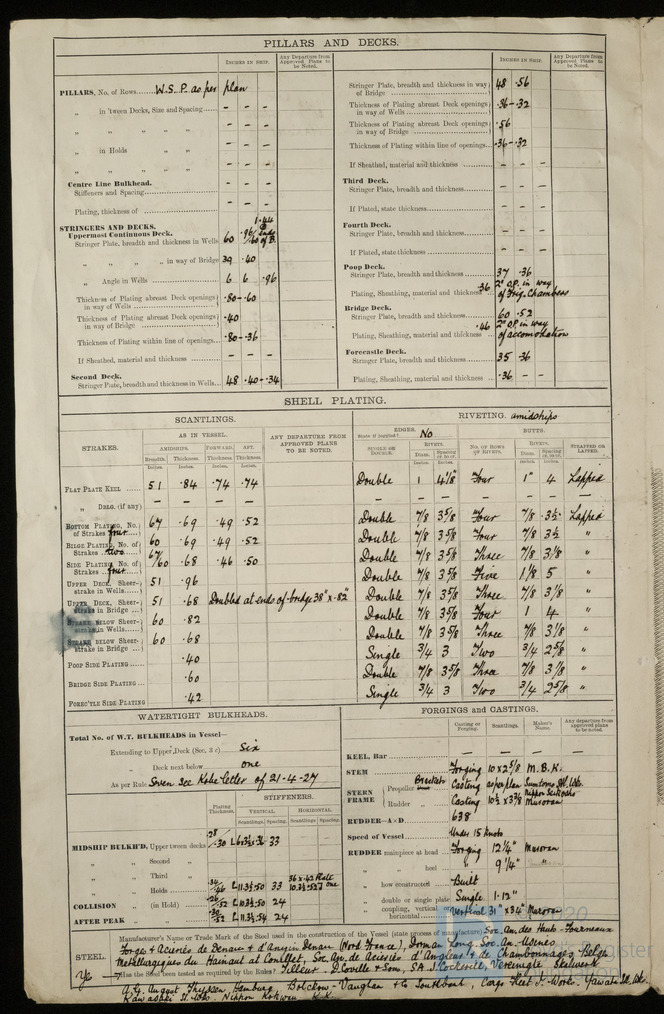 PILLARS AND DECKS.
INCHES IN SHIP.
Any Departure from Approved Plans to be Noted.
PILLARS, No. of Rows W.S.P. as per plan
„ in 'tween Decks, Size and Spacing – – –
„ „ „ „ – – –
„ in Holds – – –
„ „ „ „ – – –
Centre Line Bulkhead.
Stiffeners and Spacing – – –
Plating, thickness of – – –
STRINGERS AND DECKS.
Uppermost Continuous Deck.
Stringer Plate, breadth and thickness in Wells 60
„ „ „ „ in way of Bridge 39 .40
„ Angle in Wells 6 6 .96
Thickness of Plating abreast Deck openings in way of Wells .80-.60
Thickness of Plating abreast Deck openings in way of Bridge .40
Thickness of Plating within line of openings .80-.36
If Sheathed, material and thickness – – –
Second Deck.
Stringer Plate, breadth and thickness in Wells 48 .40-.34
INCHES IN SHIP.
Any Departure from Approved Plans to be Noted.
Stringer Plate, breadth and thickness in way of Bridge 48 .56
Thickness of Plating abreast Deck openings in way of Wells .36-.32
Thickness of Plating abreast Deck openings in way of Bridge .56
Thickness of Plating within line of openings .36-.32
If Sheathed, material and thickness – – –
Third Deck.
Stringer Plate, breadth and thickness – – –
If Plated, state thickness – – –
Fourth Deck.
Stringer Plate, breadth and thickness – – –
If Plated, state thickness – – –
Poop Deck.
Stringer Plate, breadth and thickness 37 .36
Plating, Sheathing, material and thickness .36 2" O.P. in way of Frig. Chambers
Bridge Deck.
Stringer Plate, breadth and thickness 60 .52
Plating, Sheathing, material and thickness .46 2" O.P. in way of accomodation
Forecastle Deck.
Stringer Plate, breadth and thickness 35 .36
Plating, Sheathing, material and thickness .36 – –
SHELL PLATING.
SCANTLINGS.
RIVETING. amidships
STRAKES.
AS IN VESSEL.
ANY DEPARTURE FROM APPROVED PLANS TO BE NOTED.
EDGES. State if joggled? No
BUTTS.
AMIDSHIPS. FORWARD. AFT.
Breadth. Thickness. Thickness. Thickness.
SINGLE OR DOUBLE. RIVETS. Diam. Spacing cr. to cr.
NO. OF ROWS OF RIVETS. RIVETS. Diam. Spacing cr. to cr. STRAPPED OR LAPPED.
FLAT PLATE KEEL 51 .84 .74 .74 Double 1 4 1/8" Four 1" 4 Lapped
„ DBLG. (if any) – – – – – – – – – –
BOTTOM PLATING, No. of Strakes four 67 .69 .49 .52 Double 7/8 3 5/8 Four 7/8 3 1/2 Lapped
BILGE PLATING, No. of Strakes two 60 .69 .49 .52 Double 7/8 3 5/8 Four 7/8 3 1/2 „
SIDE PLATING, No. of Strakes four 67/60 .68 .46 .50 Double 7/8 3 5/8 Three 7/8 3 1/8 „
UPPER DECK, Sheerstrake in Wells 51 .96 Double 7/8 3 5/8 Five 1 1/8 5 „
UPPER DECK, Sheerstrake in Bridge 51 .68 Doubled at ends of bridge 38" x .82" Double 7/8 3 5/8 Three 7/8 3 1/8 „
STRAKE BELOW SHEERstrake in Wells 60 .82 Double 7/8 3 5/8 Four 1 4 „
STRAKE BELOW SHEERstrake in Bridge 60 .68 Double 7/8 3 5/8 Three 7/8 3 1/8 „
POOP SIDE PLATING .40 Single 3/4 3 Two 3/4 2 5/8 „
BRIDGE SIDE PLATING .60 Double 7/8 3 5/8 Three 7/8 3 1/8 „
FOREC'TLE SIDE PLATING .42 Single 3/4 3 Two 3/4 2 5/8 „
WATERTIGHT BULKHEADS.
Total No. of W.T. BULKHEADS in Vessel—
Extending to Upper Deck (Sec. 3 c) Six
„ Deck next below one
As per Rule Seven see Kobe letter of 21-4-27
Plating Thickness.
STIFFENERS.
VERTICAL. HORIZONTAL.
Scantlings. Spacing. Scantlings. Spacing.
MIDSHIP BULKH'D, Upper tween decks .28/.30 33
„ „ Second „
„ „ Third „
„ „ Holds .34/.46 L 11.3½.50 33
COLLISION „ (in Hold) L 10.3½.50 24
AFTER PEAK „ L 11.3½.54 24
FORGINGS and CASTINGS.
Casting or Forging. Scantlings. Maker's Name. Any departure from approved plans to be noted.
KEEL, Bar – – –
STEM Forging 10 x 2 5/8 M.B.K.
STERN FRAME Propeller Brackets Casting as per plan Sumitomo Stl. Wks.
Rudder „ Casting Muroran
RUDDER—A×D 638
Speed of Vessel Under 15 knots
RUDDER mainpiece at head Forging 12 1/4" Muroran
„ „ heel „ 9 1/4" „
„ how constructed Built
„ double or single plate Single 1.12"
„ coupling, vertical or horizontal Vertical 31" x 3 1/4" Muroran
STEEL.
Manufacturer's Name or Trade Mark of the Steel used in the construction of the Vessel (state process of manufacture) Soc. An. des Hauts-Fourneaux
Forges & Aciéries de Denain & d'Anzin Denain (Nord France), Dorman Long. Soc. An. Usines
Métallurgiques du Hainaut at Couillet, Soc. An. de Aciéries d'Angleur & de Charbonnages Belge
Has the Steel been tested as required by the Rules? Yes Tilleur. D. Colville & Son, SA J. Cockerill, Vereinigte Stalwerk
A.G. August Thyssen Hamburg, Bolckow-Vaughan & Co Southbank, Cargo Fleet I. Works. Yawata Stl. Wks.
Kawasaki St. Wks. Nippon Kokwan K.K.